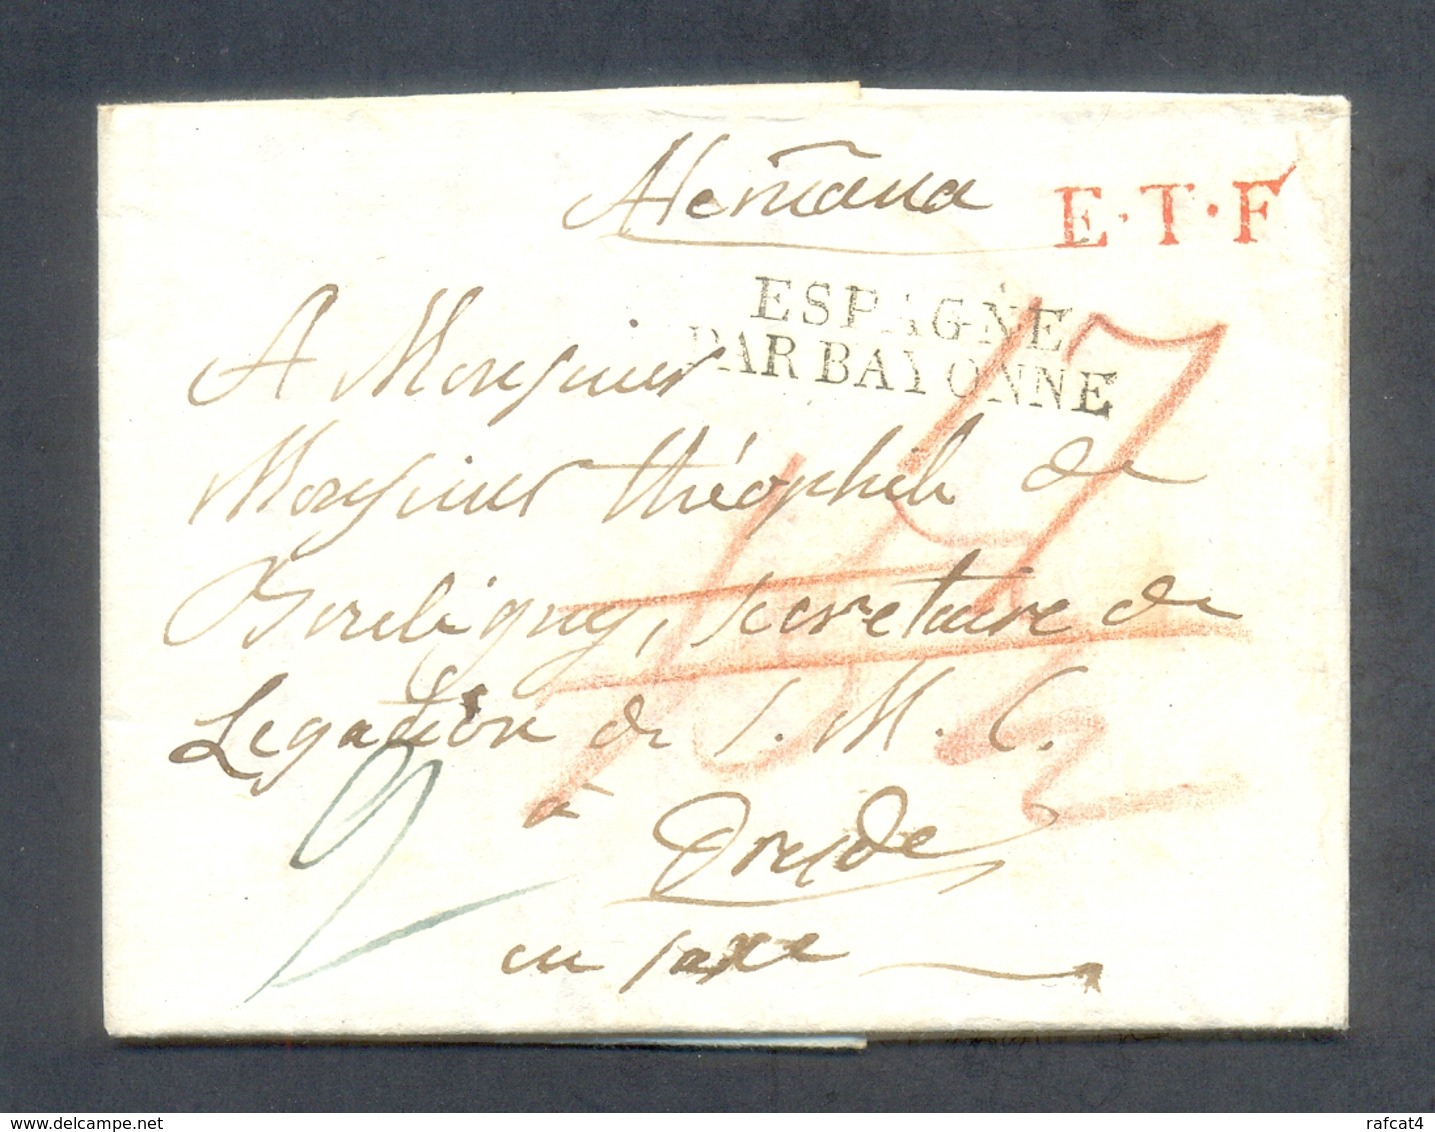 Alemana
E·T·F
ESPAGNE
PAR BAYONNE
A Monsieur
Monsieur théophile de
Bourligny, secretaire de
Legation de S. M. C.
à
Dresde
en saxe
delcampe.net
rafcat4